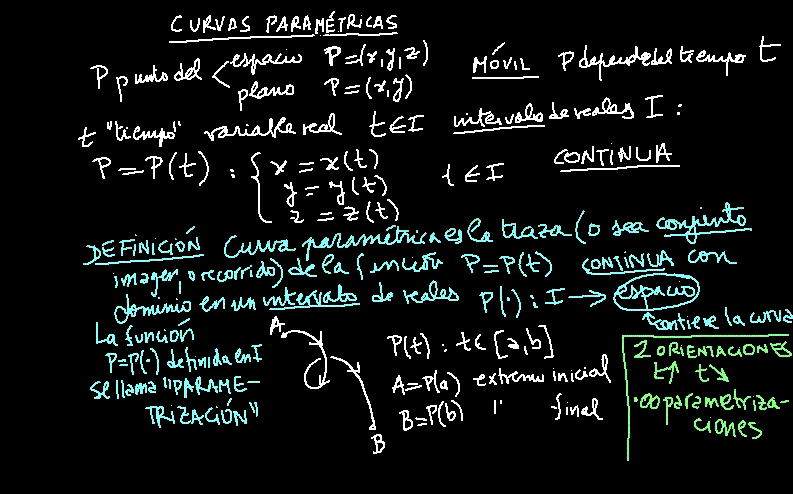 CURVAS PARAMÉTRICAS
P punto del espacio P=(x,y,z) MÓVIL P depende del tiempo t
plano P=(x,y)
t "tiempo" variable real t∈I intervalo de reales I:
P=P(t): { x=x(t) t∈I CONTINUA
y=y(t)
z=z(t)
DEFINICIÓN Curva paramétrica es la traza (o sea conjunto
imagen, o recorrido) de la función P=P(t) CONTINUA con
dominio en un intervalo de reales P(·): I → espacio
contiene la curva
La función
P=P(·) definida en I
se llama "PARAME-
TRIZACIÓN"
A
B
P(t): t∈[a,b]
A=P(a) extremo inicial
B=P(b) " final
2 ORIENTACIONES
t↑ t↘
·∞ parametriza-
ciones